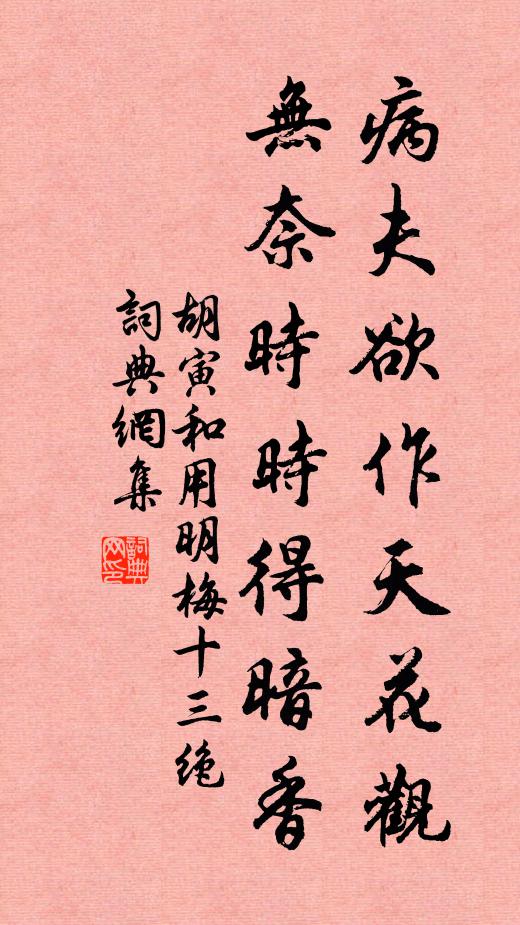 病夫欲作天花觀
無奈時時得暗香
胡寅和用明梅十三绝
詞典網集
詞典网印